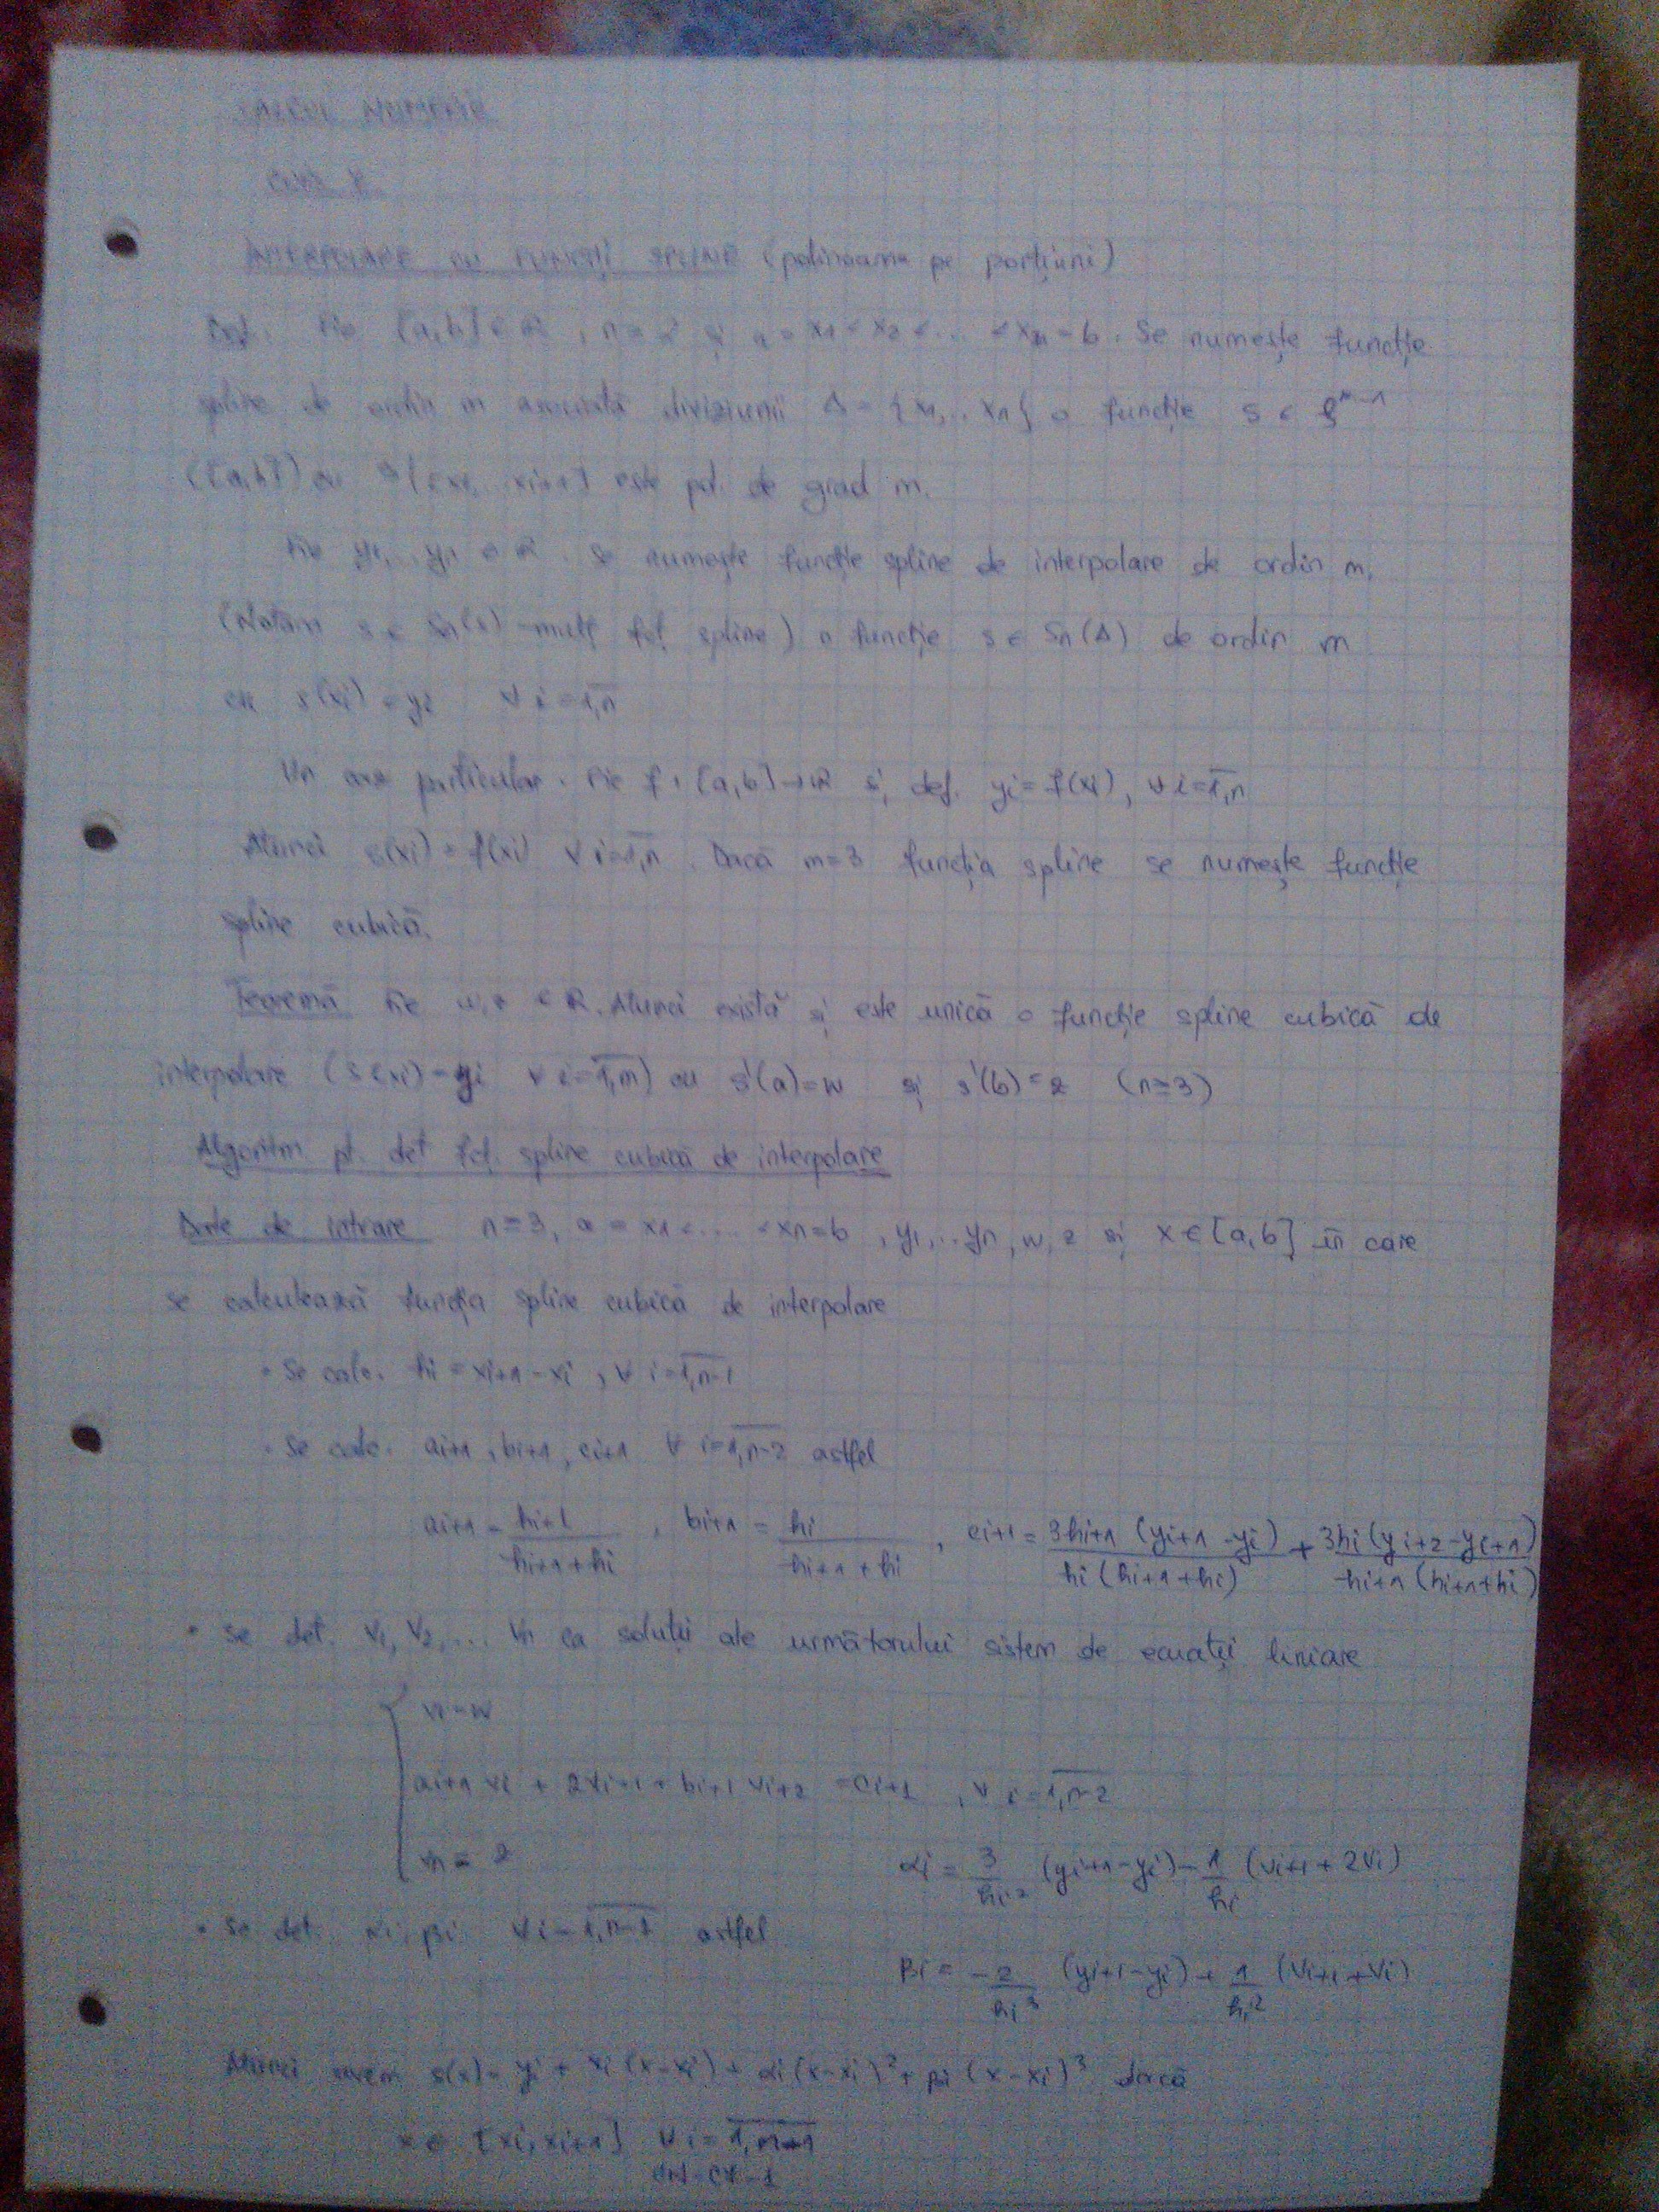 CALCUL NUMERIC
INTERPOLARE cu FUNCȚII SPLINE (polinoame pe porțiuni)
Def. Fie [a,b] ⊂ R, n ≥ 2 și a = x1 < x2 < ... < xn = b. Se numește funcție
spline de ordin m asociată diviziunii Δ = {x1,.. xn} o funcție s ∈ C^m-1
([a,b]) cu s|[xi, xi+1] este pol. de grad m.
Fie y1,.. yn ∈ R. Se numește funcție spline de interpolare de ordin m,
(Notăm s ∈ Sn(Δ) mulț fcț spline) o funcție s ∈ Sn(Δ) de ordin m
cu s(xi) = yi ∀ i = 1,n
Un caz particular. Fie f : [a,b] → R și def. yi = f(xi), ∀ i = 1,n
Atunci s(xi) = f(xi) ∀ i = 1,n. Dacă m = 3 funcția spline se numește funcție
spline cubică.
Teoremă Fie w, z ∈ R. Atunci există și este unică o funcție spline cubică de
interpolare (s(xi) = yi ∀ i = 1,n) cu s'(a) = w și s'(b) = z (n ≥ 3)
Algoritm pt. det fcț. spline cubică de interpolare
Date de intrare n ≥ 3, a = x1 < ... < xn = b, y1,.. yn, w, z și x ∈ [a,b] în care
se calculează funcția spline cubică de interpolare
• Se calc. hi = xi+1 - xi, ∀ i = 1,n-1
• Se calc. ai+1, bi+1, ci+1 ∀ i = 1,n-2 astfel
ai+1 = hi+1 / (hi+1 + hi), bi+1 = hi / (hi+1 + hi), ci+1 = 3hi+1 (yi+1 - yi) / hi (hi+1 + hi) + 3hi (yi+2 - yi+1) / hi+1 (hi+1 + hi)
• Se det. v1, v2, ... vn ca soluții ale următorului sistem de ecuații liniare
v1 = w
ai+1 vi + 2vi+1 + bi+1 vi+2 = ci+1, ∀ i = 1,n-2
vn = z
αi = 3/hi² (yi+1 - yi) - 1/hi (vi+1 + 2vi)
• Se det. αi, βi ∀ i = 1,n-1 astfel
βi = -2/hi³ (yi+1 - yi) + 1/hi² (vi+1 + vi)
Atunci avem s(x) = yi + vi (x - xi) + αi (x - xi)² + βi (x - xi)³ dacă
x ∈ [xi, xi+1] ∀ i = 1,n-1